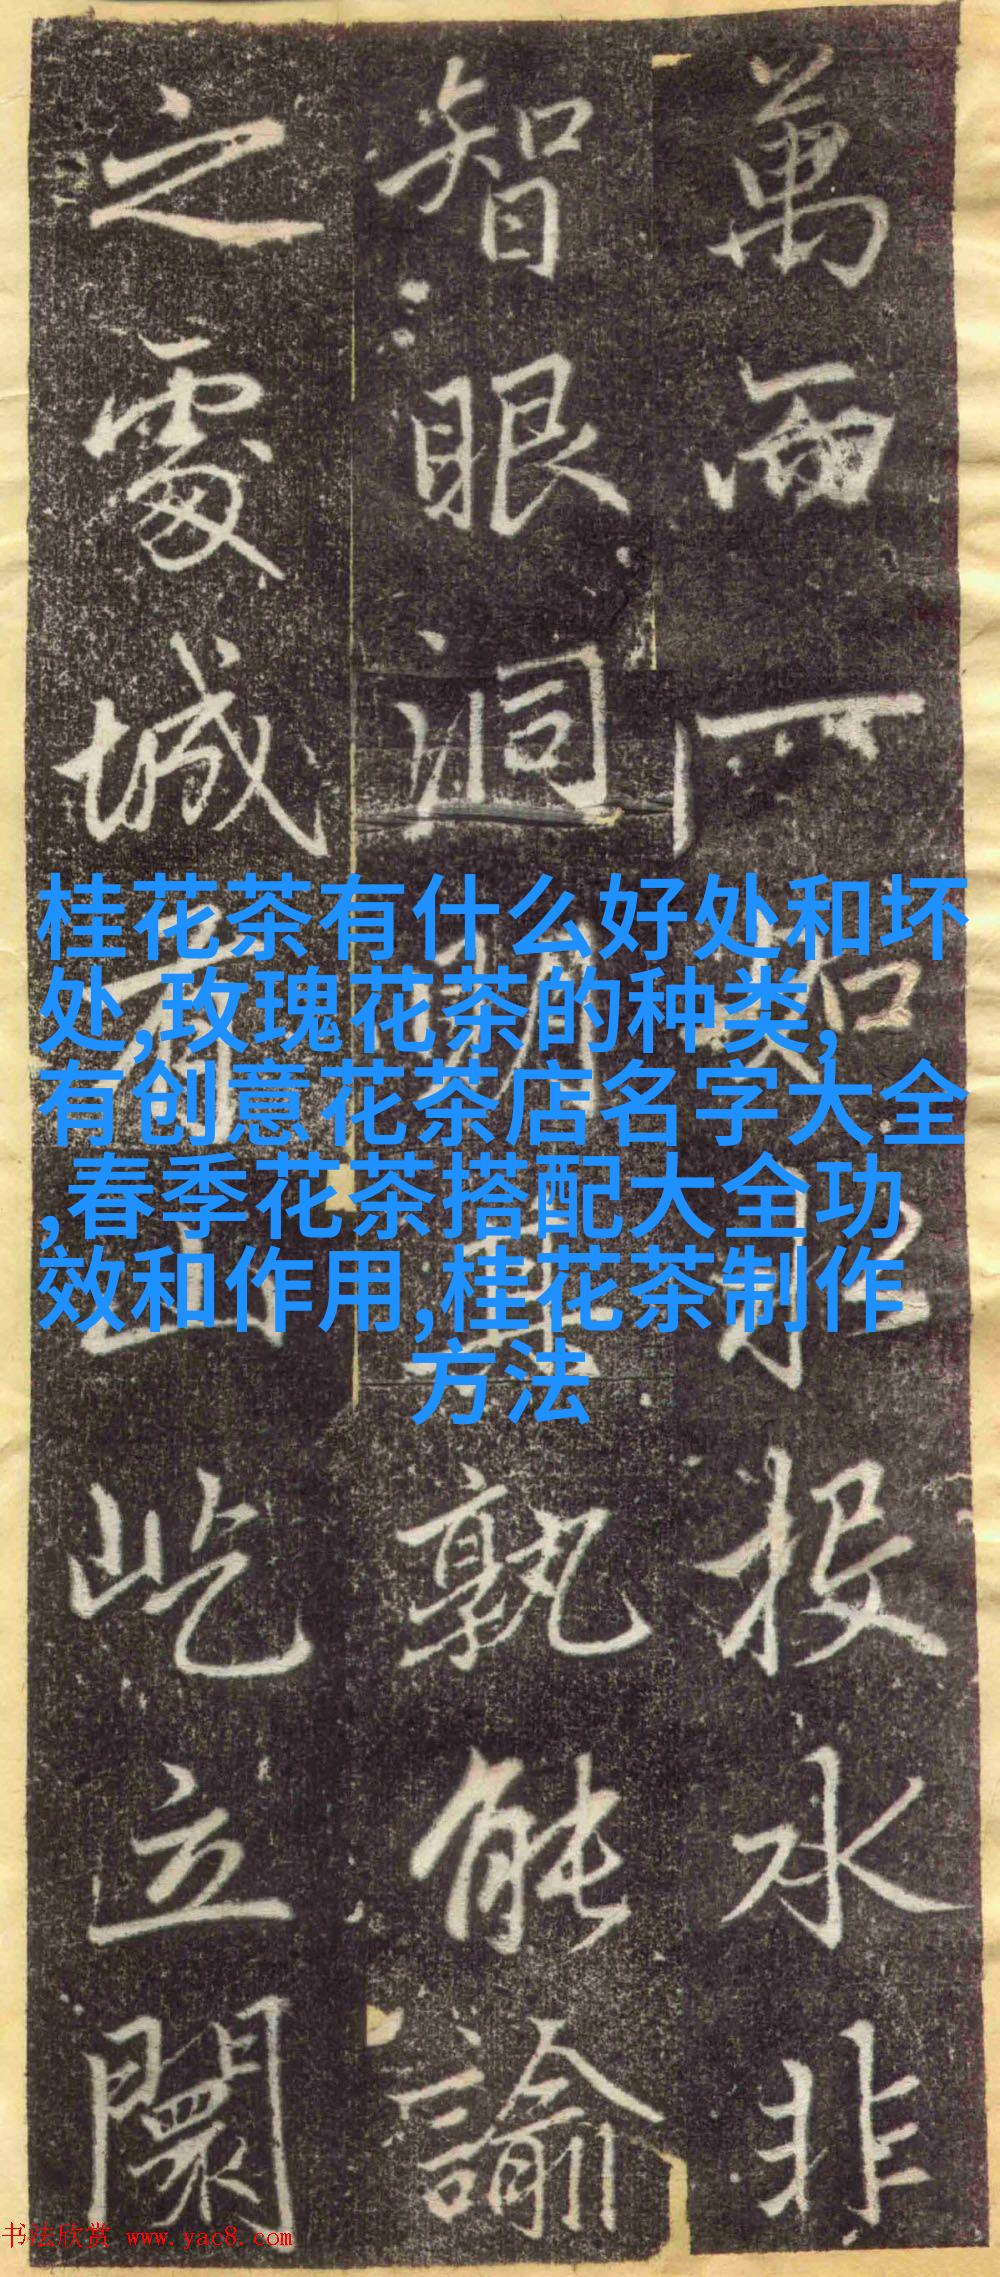 桂花茶有什么好处和坏
处,玫瑰花茶的种类,
有创意花茶店名字大全
,春季花茶搭配大全功
效和作用,桂花茶制作
方法
萬 如 投水非
智眼洞明 孰能諭
之 城 山屹立
书法欣赏 www.yac8.com